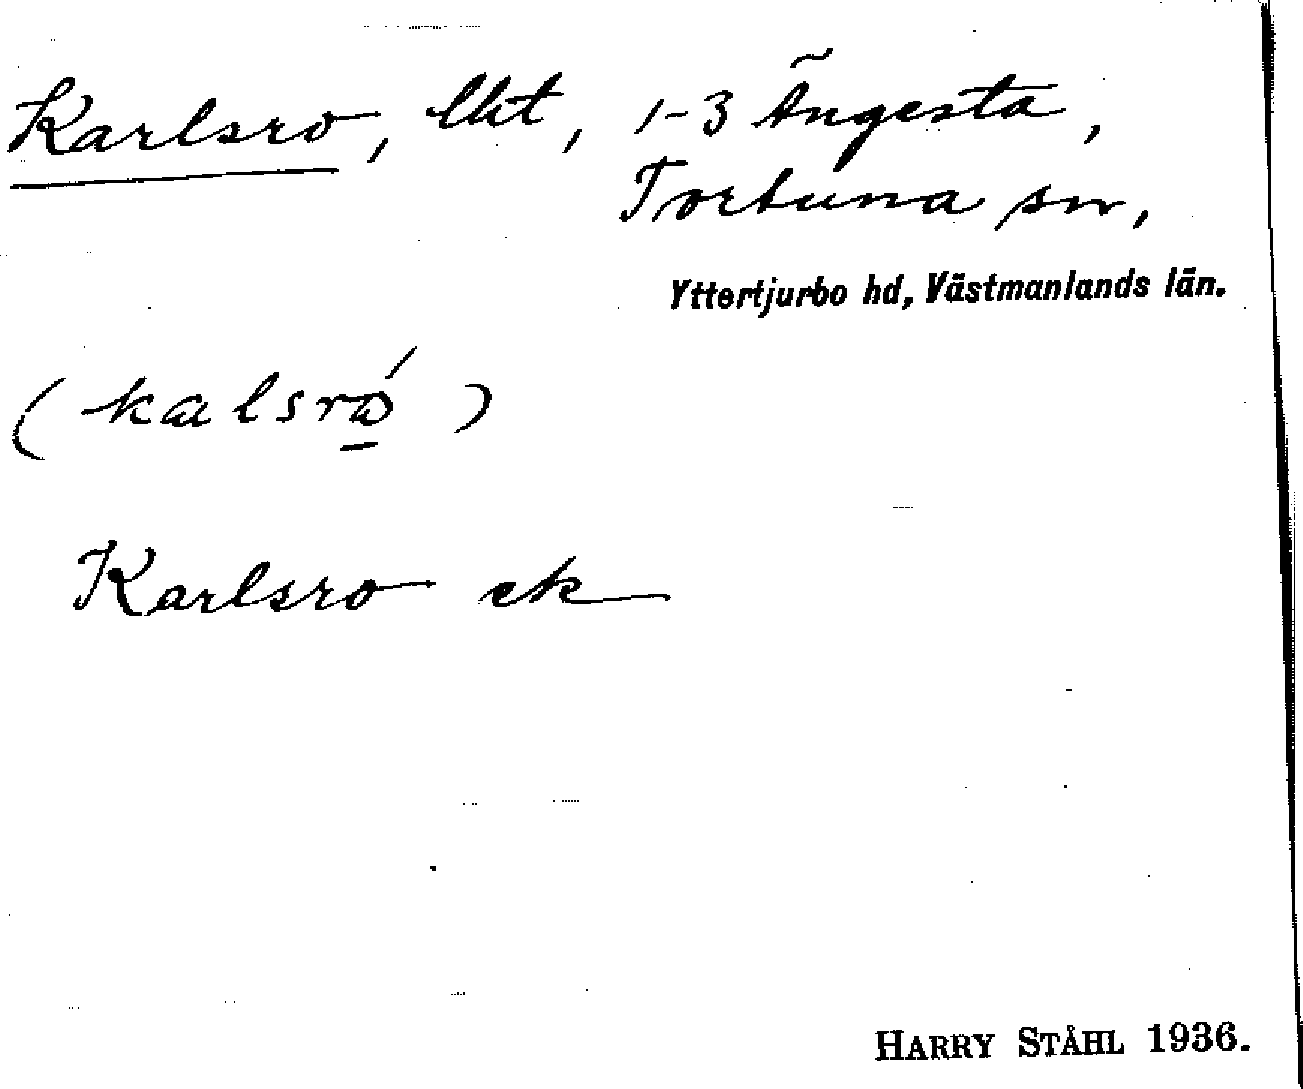 Karlsro, lht, 1-3 Ängesta,
Tortuna sn,
Yttertjurbo hd, Västmanlands län.
Karlsro ek
HARRY STÅHL 1936.